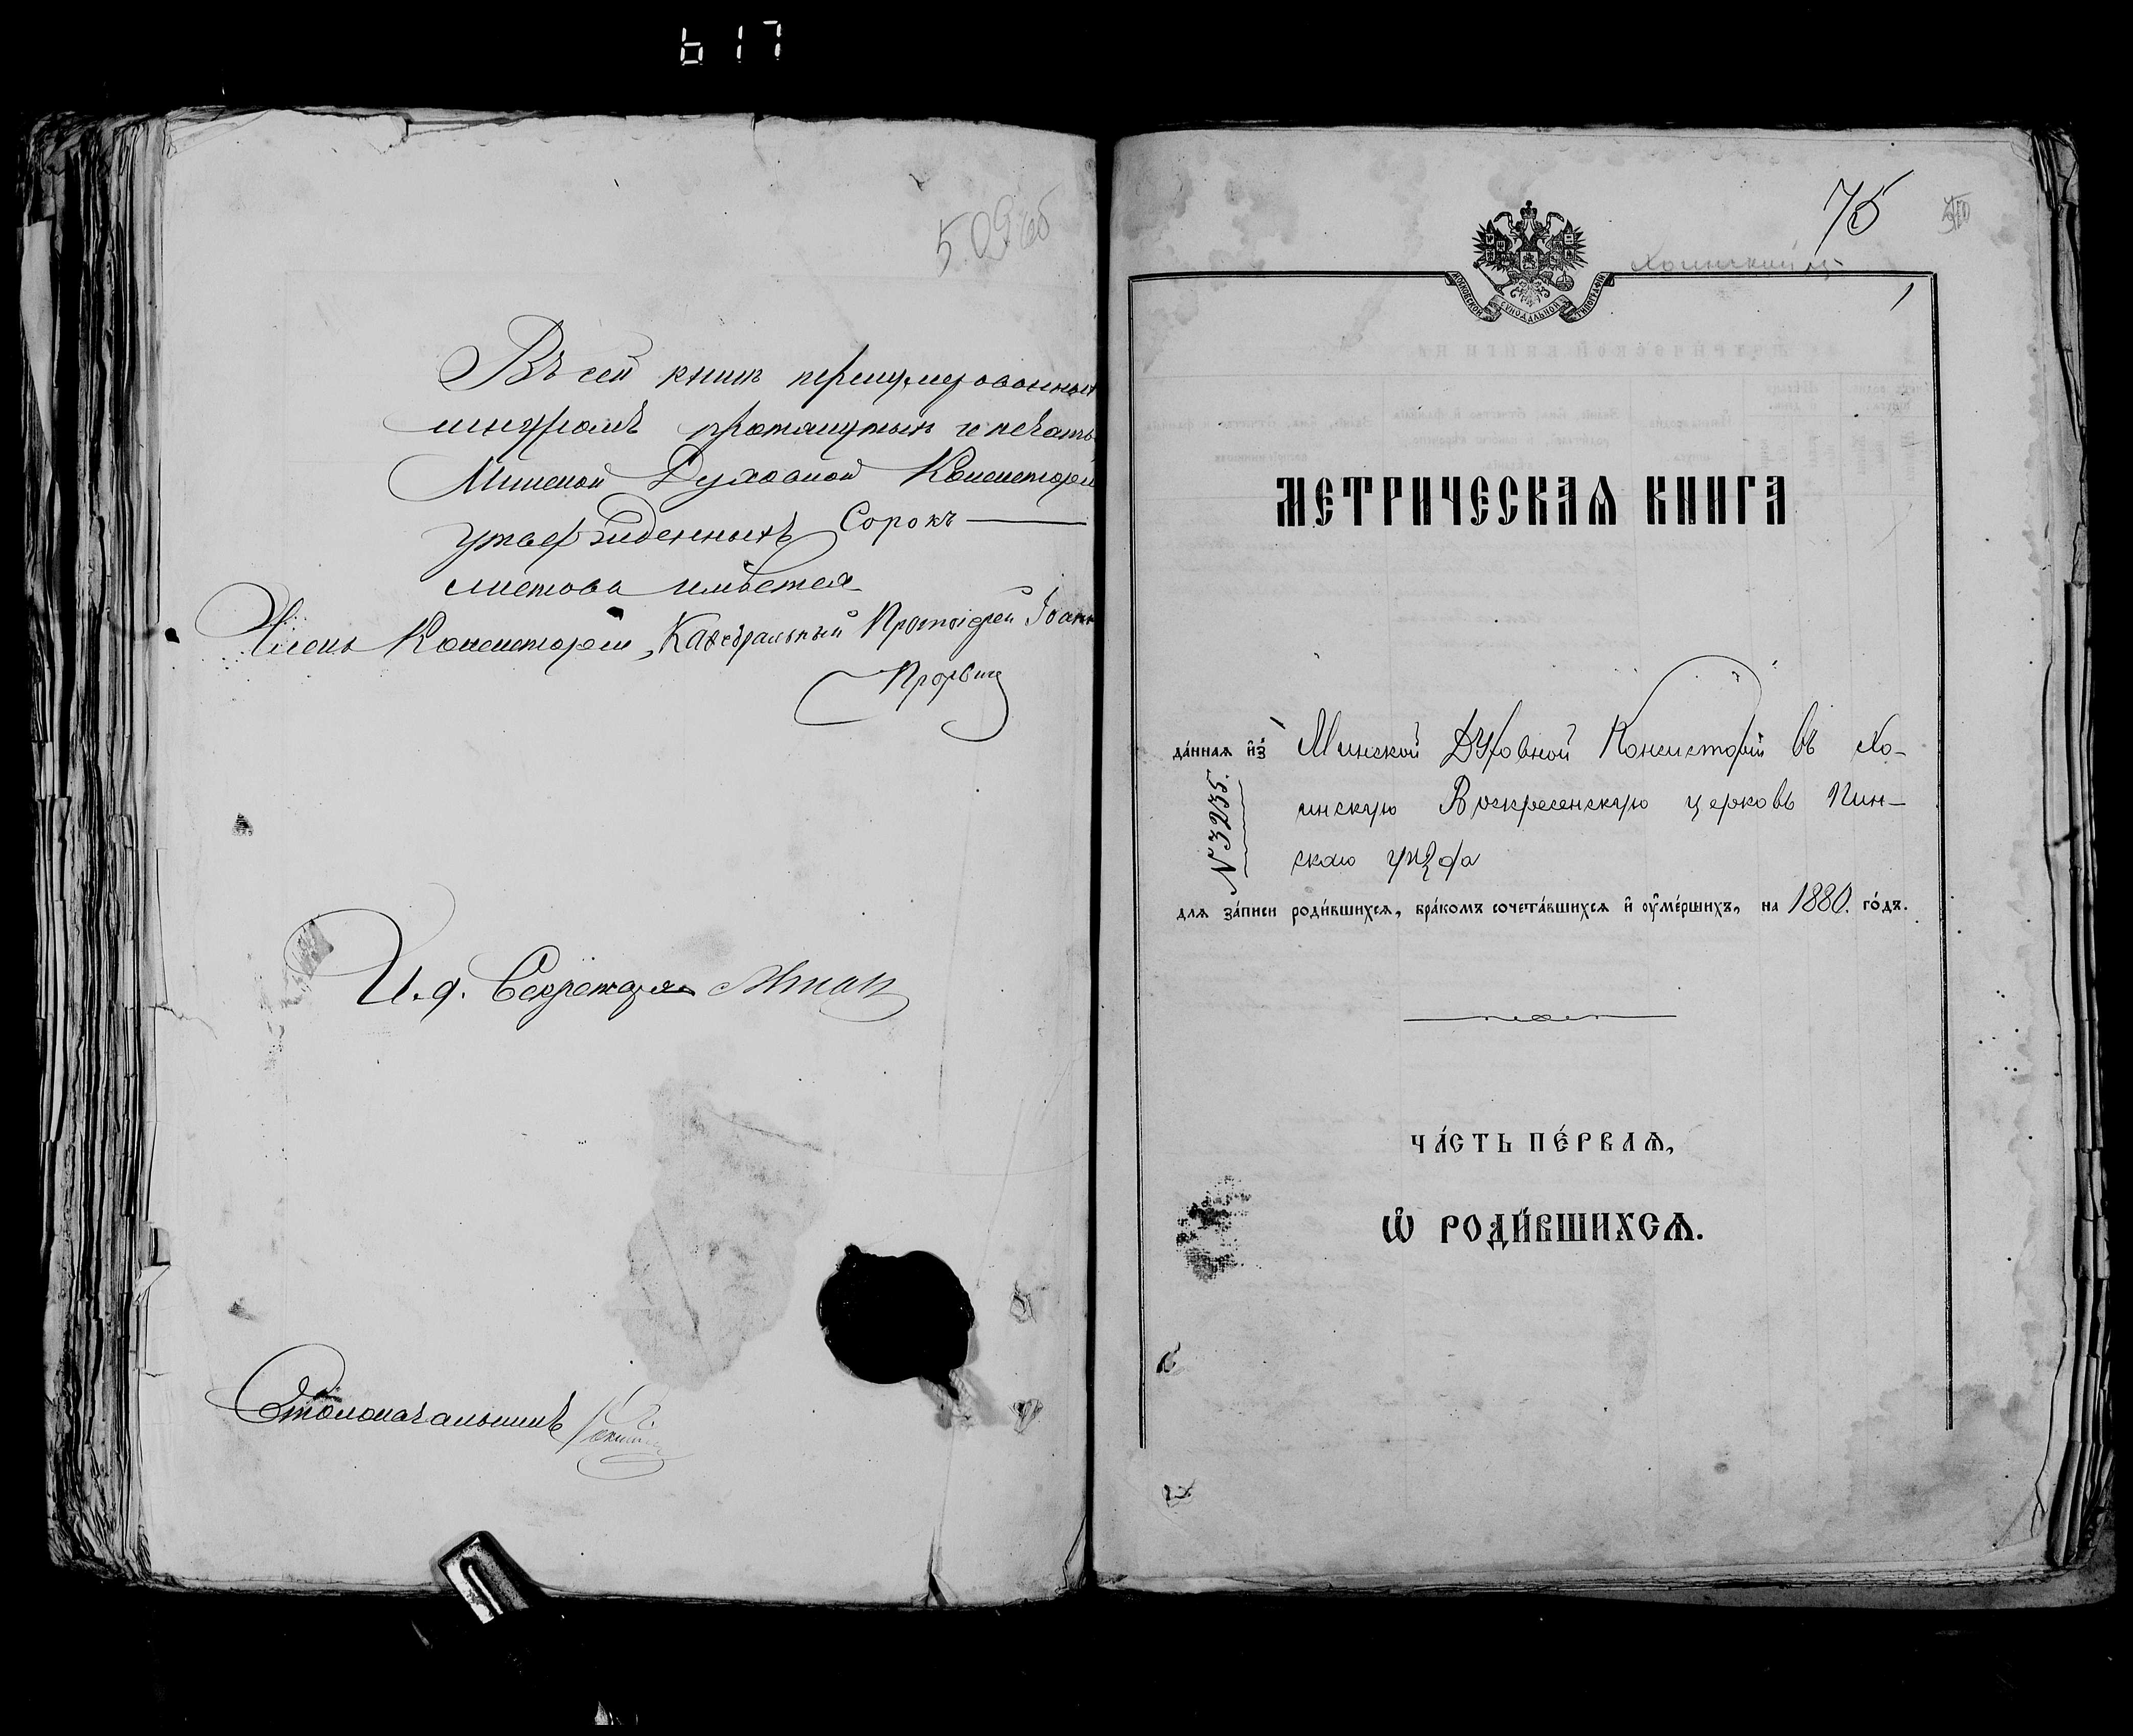 617
509об
Въ сей книгѣ перенумерованныхъ
шнуромъ протянутыхъ и печатью
Минской Духовной Консисторіи
утвержденныхъ Сорокъ
листовъ имѣется
Членъ Консисторіи, Каѳедральный Протоіерей Іоаннъ
И. д. Секретаря
Столоначальникъ
75
510
1
МОСКОВСКОЙ СУНОДАЛЬНОЙ ТИПОГРАФІИ
МЕТРИЧЕСКАѦ КНИГА
да́нная и҆з̾ Минской Духовной Консисторіи въ Хо-
инскую Воскресенскую церковь Пин-
скаго уѣзда
№ 3235.
для за́писи роди́вшихся, бра́комъ сочета́вшихся и҆ оу҆ме́ршихъ, на 1880. го́дъ.
ЧА́СТЬ ПЕ́РВАѦ,
Ѡ҆ РОДИ́ВШИХСѦ.